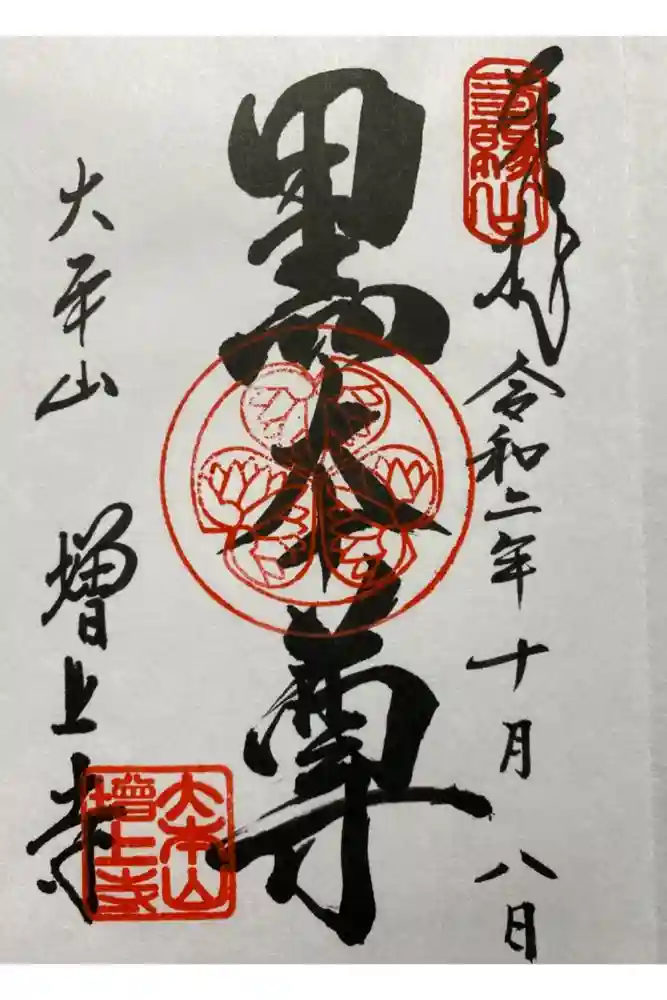 奉拝 令和二年十月八日
三縁山
黒本尊
大本山 増上寺
大本山
増上寺